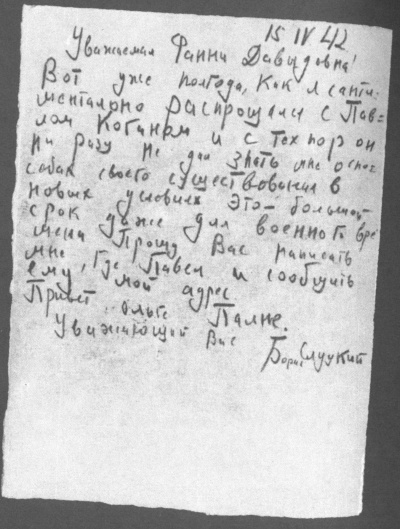 15 IV 42
Уважаемая Фанни Давыдовна!
Вот уже полгода, как я санти-
ментально распрощался с Пав-
лом Коганом и с тех пор он
ни разу не дал знать мне о спо-
собах своего существования в
новых условиях. Это – большой
срок даже для военного вре
мени. Прошу Вас написать
мне, где Павел и сообщить
ему мой адрес
Привет Ольге Палне.
Уважающий Вас
Борис Слуцкий